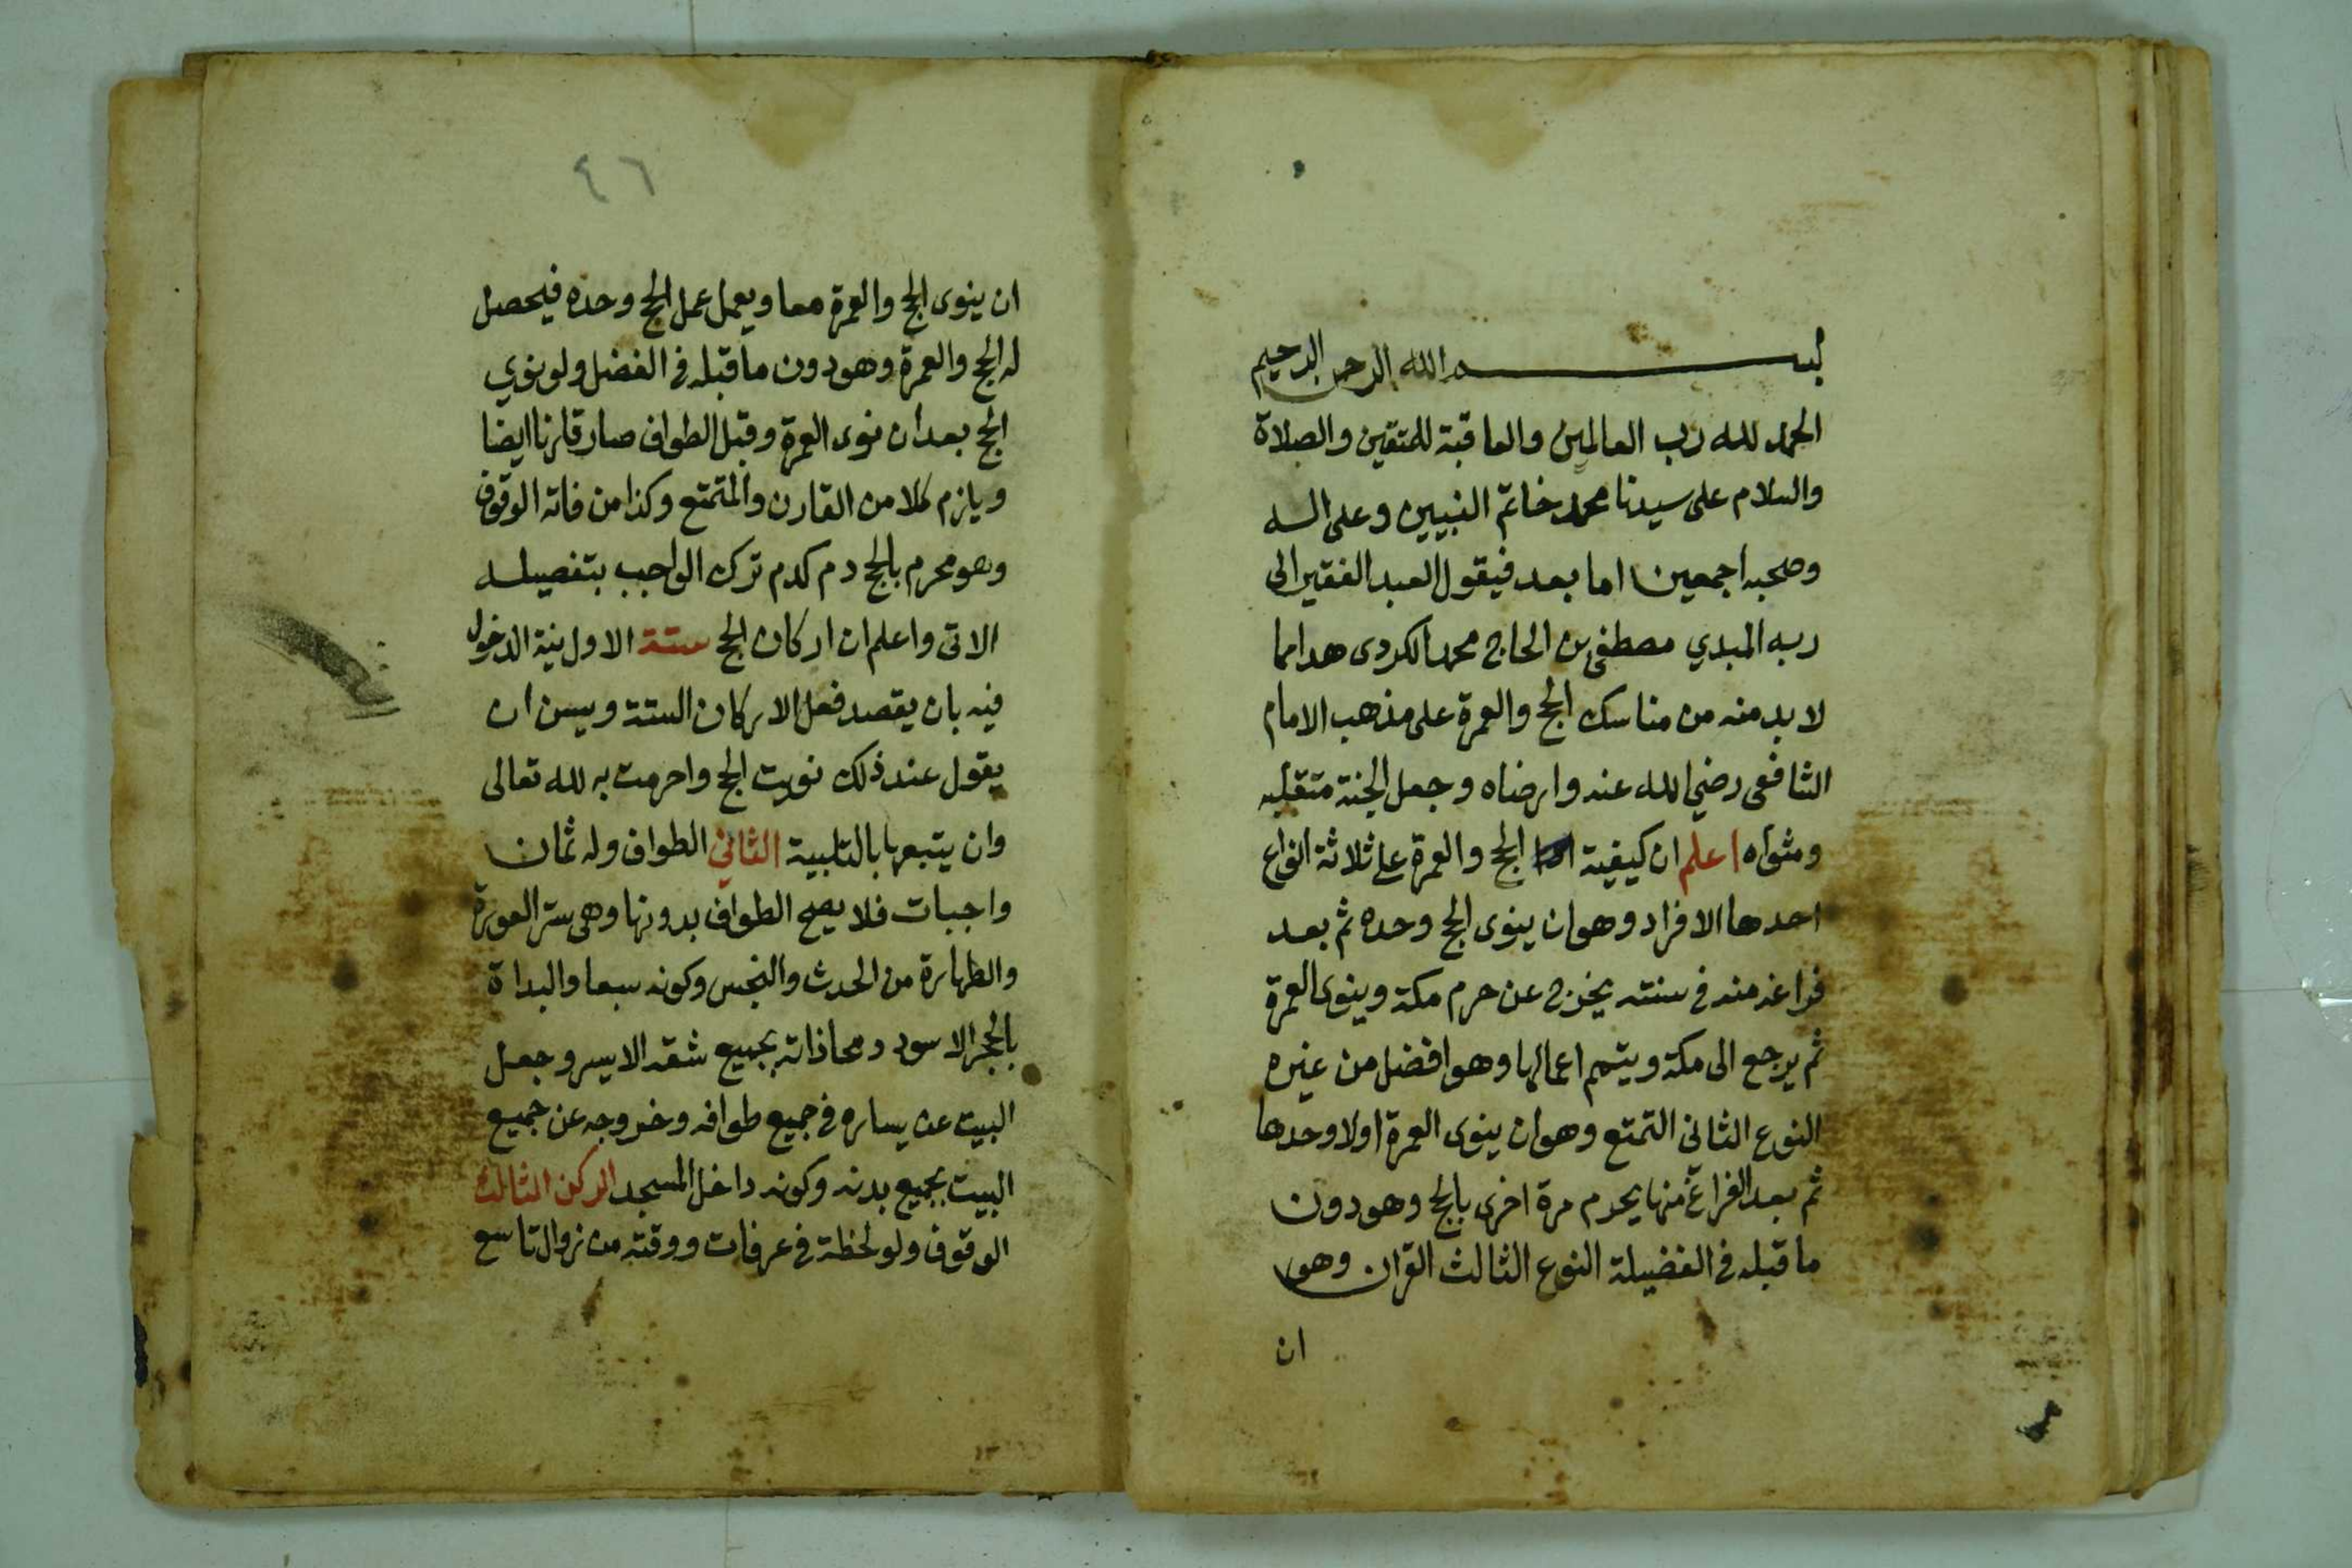 بسم الله الرحمن الرحيم
الحمد لله رب العالمين والعاقبة للمتقين والصلاة
والسلام على سيدنا محمد خاتم النبيين وعلى اله
وصحبه اجمعين اما بعد فيقول العبد الفقير الى
ربه المبدي مصطفى بن الحاج محمد الكردى هذا مما
لا بد منه من مناسك الحج والعمرة على مذهب الامام
الشافعى رضي الله عنه وارضاه وجعل الجنة متقلبه
ومثواه اعلم ان كيفية الحج والعمرة على ثلاثة انواع
احدها الافراد وهو ان ينوى الحج وحده ثم بعد
فراغه منه فى سنته يخرج عن حرم مكة وينوى العمرة
ثم يرجع الى مكة ويتمم اعمالها وهو افضل من غيره
النوع الثانى التمتع وهو ان ينوى العمرة اولا وحدها
ثم بعد الفراغ منها يحرم مرة اخرى بالحج وهو دون
ما قبله فى الفضيلة النوع الثالث القران وهو
ان
٤٦
ان ينوى الحج والعمرة معا ويعمل عمل الحج وحده فيحصل
له الحج والعمرة وهو دون ما قبله فى الفضل ولو نوي
الحج بعد ان نوى العمرة وقبل الطواف صار قارنا ايضا
ويلزم كلا من القارن والمتمتع وكذا من فاته الوقوف
وهو محرم بالحج دم كدم ترك الواجب بتفصيله
الاتى واعلم ان اركان الحج ستة الاول نية الدخول
فيه بان يقصد فعل الاركان الستة ويسن ان
يقول عند ذلك نويت الحج واحرمت به لله تعالى
وان يتبعها بالتلبية الثاني الطواف وله ثمان
واجبات فلا يصح الطواف بدونها وهى ستر العورة
والطهارة من الحدث والنجس وكونه سبعا والبداة
بالحجر الاسود ومحاذاته بجميع شقه الايسر وجعل
البيت عن يساره فى جميع طوافه وخروجه عن جميع
البيت بجميع بدنه وكونه داخل المسجد الركن الثالث
الوقوف ولو لحظة فى عرفات ووقته من زوال تاسع